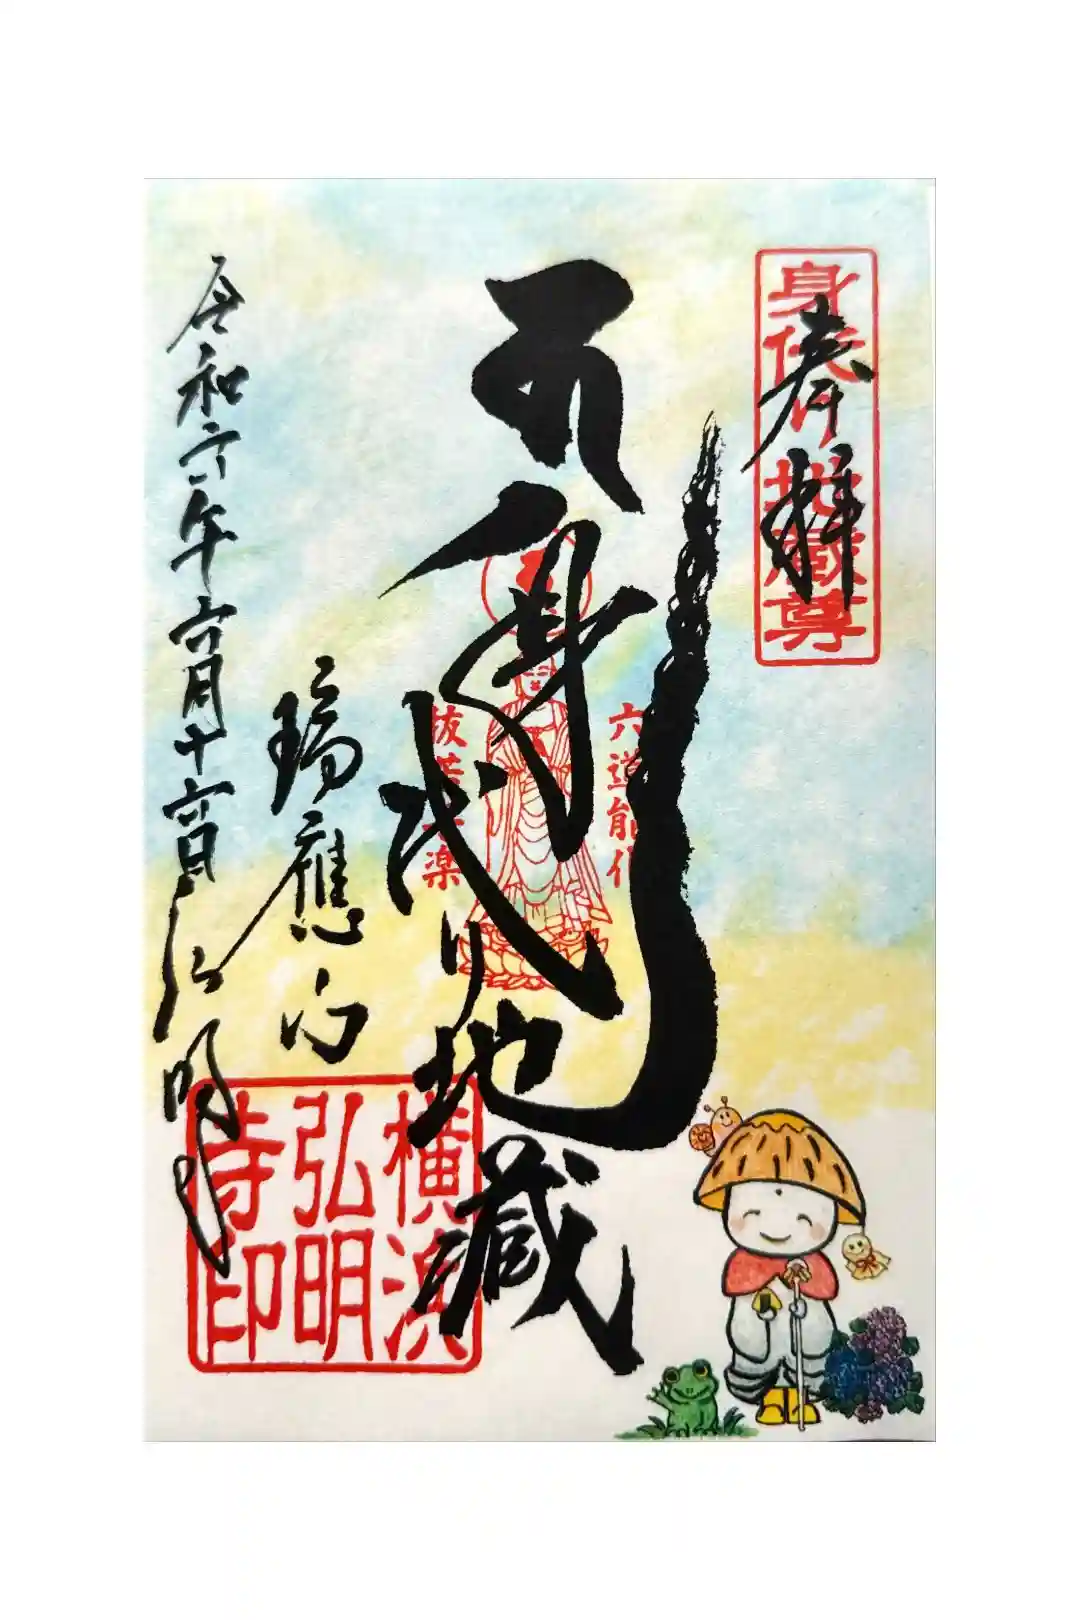 奉拝
身代り地蔵尊
六道能化
身代り地蔵
抜苦与楽
瑞應山
令和六年六月十六日 弘明寺
横浜
弘明
寺印